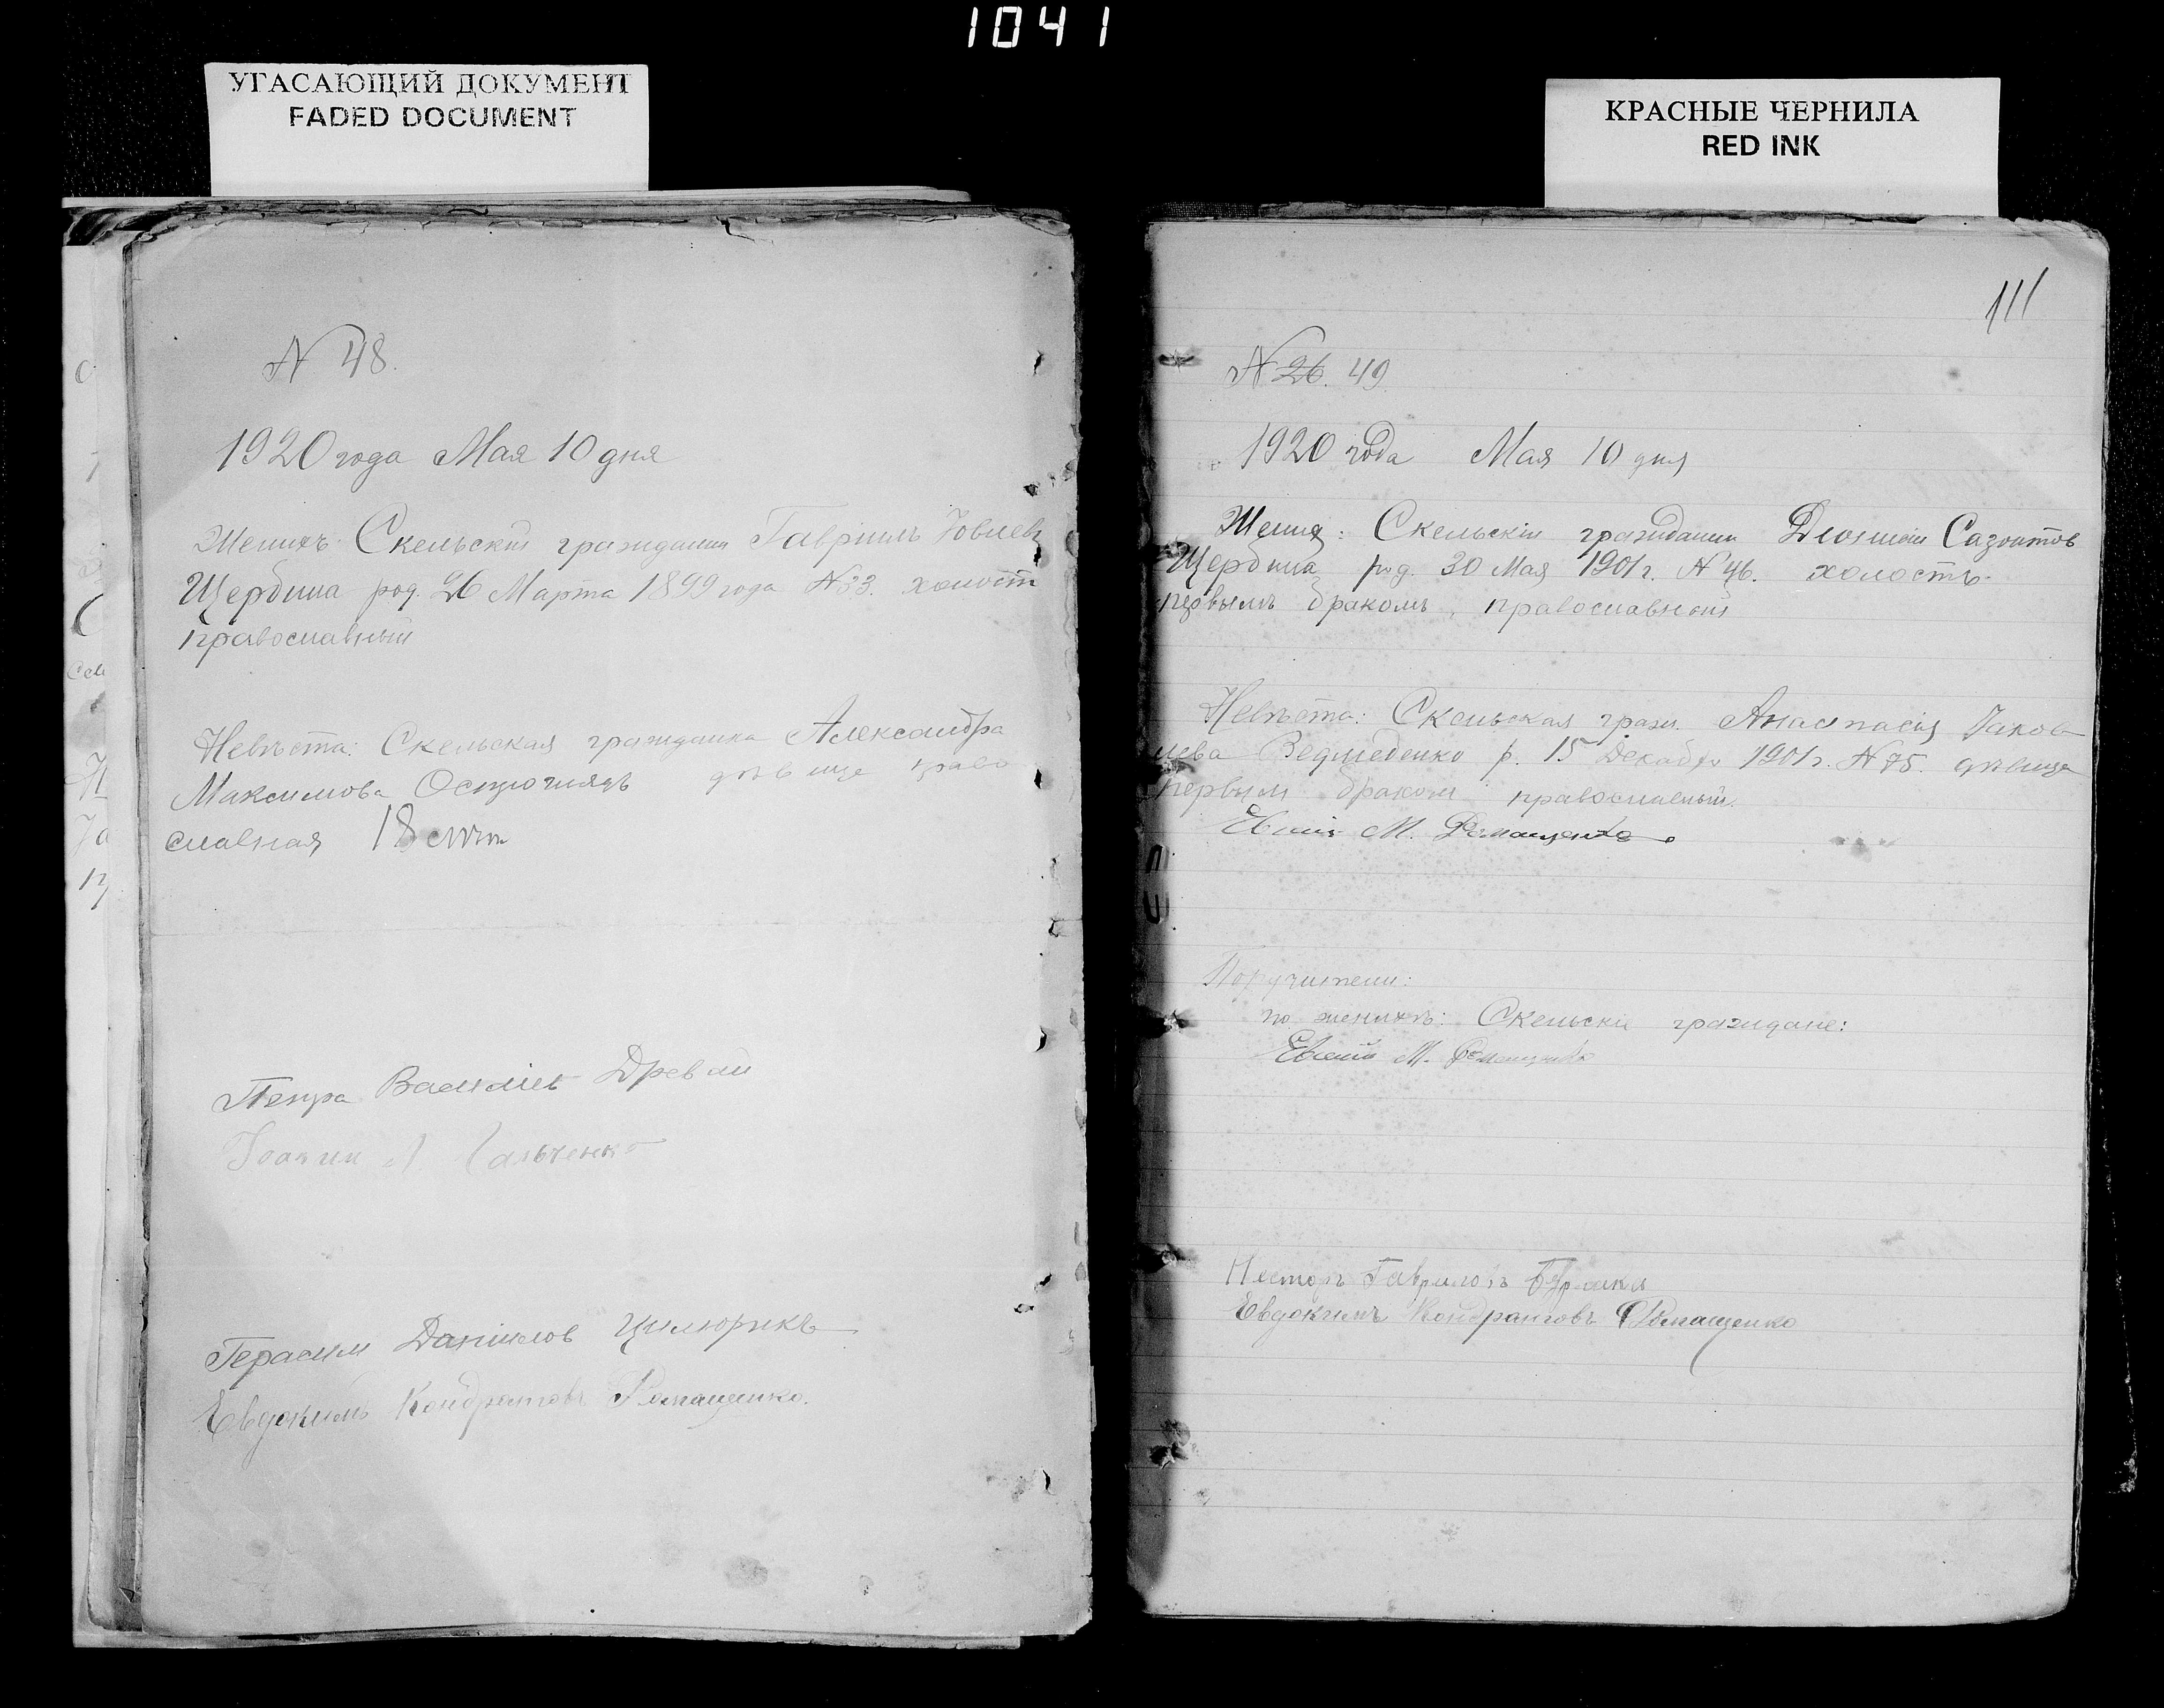 1041
УГАСАЮЩИЙ ДОКУМЕНТ
FADED DOCUMENT
КРАСНЫЕ ЧЕРНИЛА
RED INK
N 48.
1920 года Мая 10 дня
Женихъ: Скельскій гражданин Гавріилъ Іовлевъ
Щербина род. 26 Марта 1899 года N 33. холост
православный
Невѣста: Скельская гражданка Александра
Максимова дѣвица право
славная 18 лѣт
Петра Васильев
Герасим Даниилов Цилюрикъ
Евдокимъ Кондратовъ Ромащенко.
111
N 26. 49
1920 года Мая 10 дня
Жених: Скельскій гражданин Діонисій Сазонтов
Щербина род. 30 Мая 1901 г. N 46. холостъ
первымъ бракомъ, православный
Невѣста: Скельская граж. Анастасія Іаков
лева Ведмеденко р. 15 Декабря 1901 г. N 75. дѣвица
первым браком православный.
М. Ромащенко
Поручители:
по женихѣ: Скельски граждане:
М. Ромащенко
Несторъ Гавриловъ
Евдокимъ Кондратовъ Ромащенко